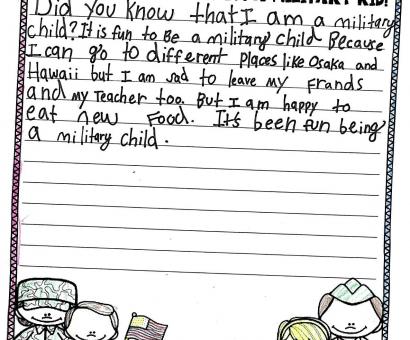 MILITARY KID!
Did you know that I am a military
child? It is fun to Be a military child Because
I can go to different places like Osaka and
Hawaii but I am sad to leave my frands
and my Teacher too. But I am happy to
eat new Food. It's been fun being
a military child.